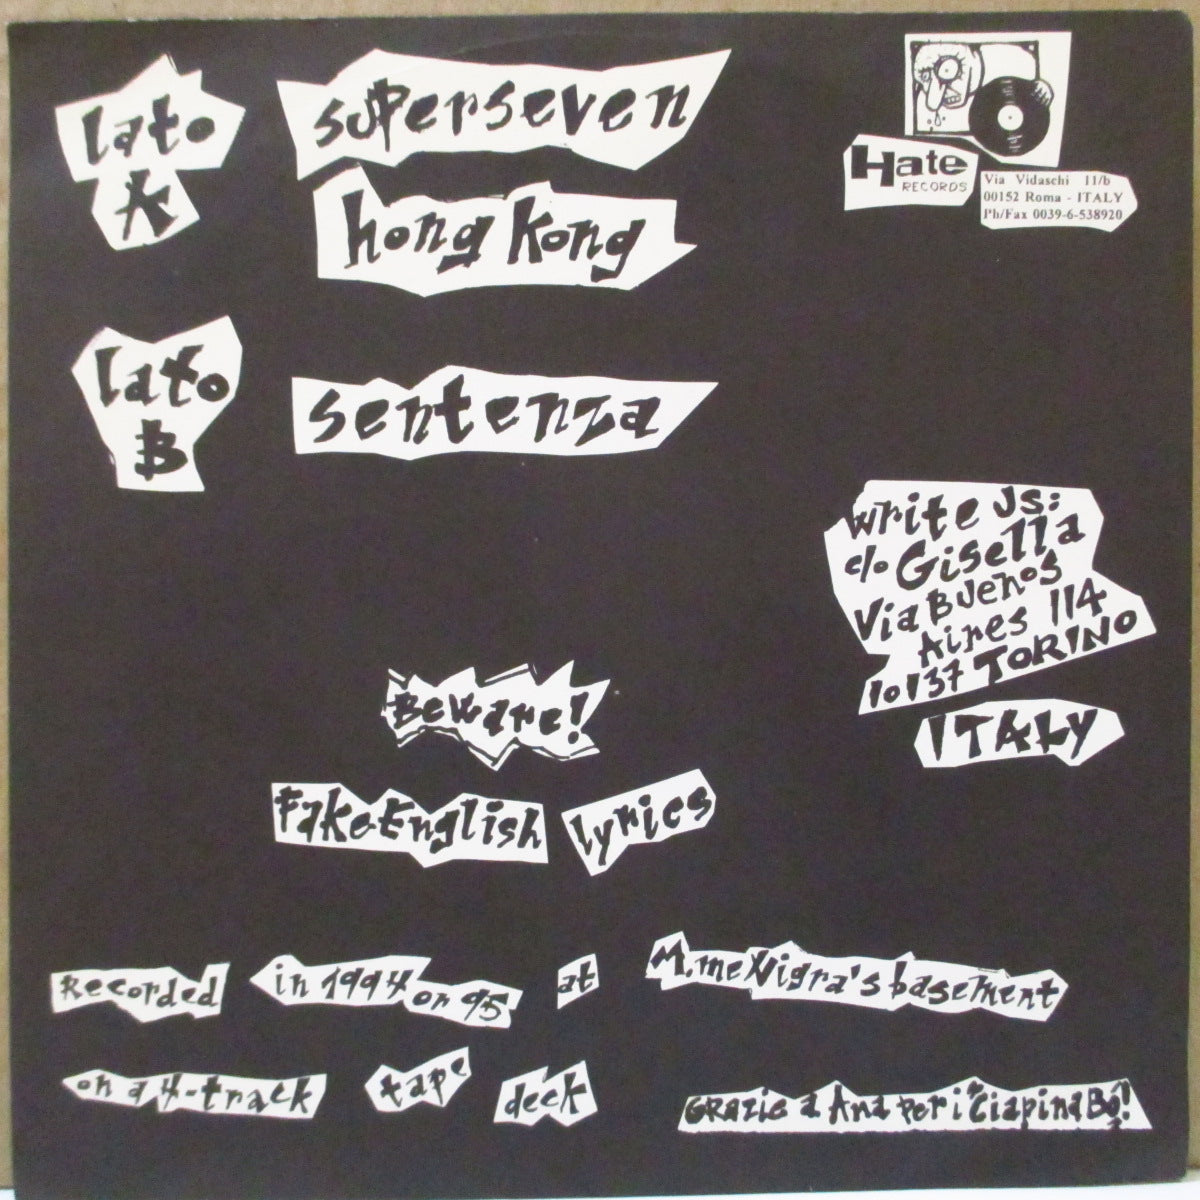 lato
A
superseven
hong kong
Hate
RECORDS
Via Vidaschi 11/b
00152 Roma - ITALY
Ph/Fax 0039-6-538920
lato
B
sentenza
write Us:
c/o Gisella
Via Buenos
Aires 114
10137 TORINO
ITALY
Beware!
Fake-English lyrics
Recorded in 1994 or 95 at M.me Nigra's basement
on a 4-track tape deck
Grazie a Ana per i "Ciapina Bó!